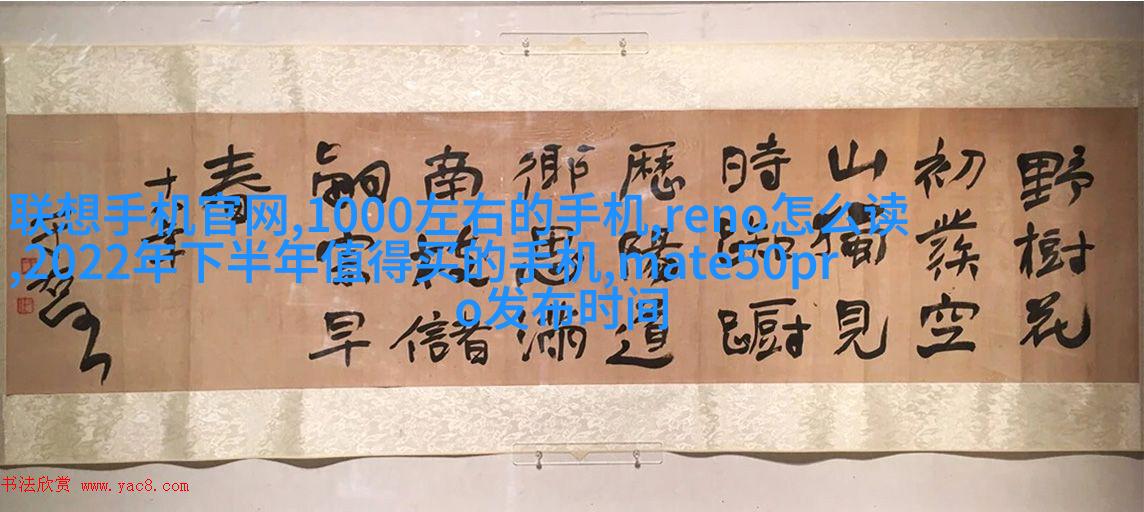 野樹花
初發空
山獨見
時踟躕
歷陽道
鄉思滿
南枝儲
嗣宗早
春
联想手机官网,1000左右的手机,reno怎么读
,2022年下半年值得买的手机,mate50pr
o发布时间
书法欣赏 www.yac8.com